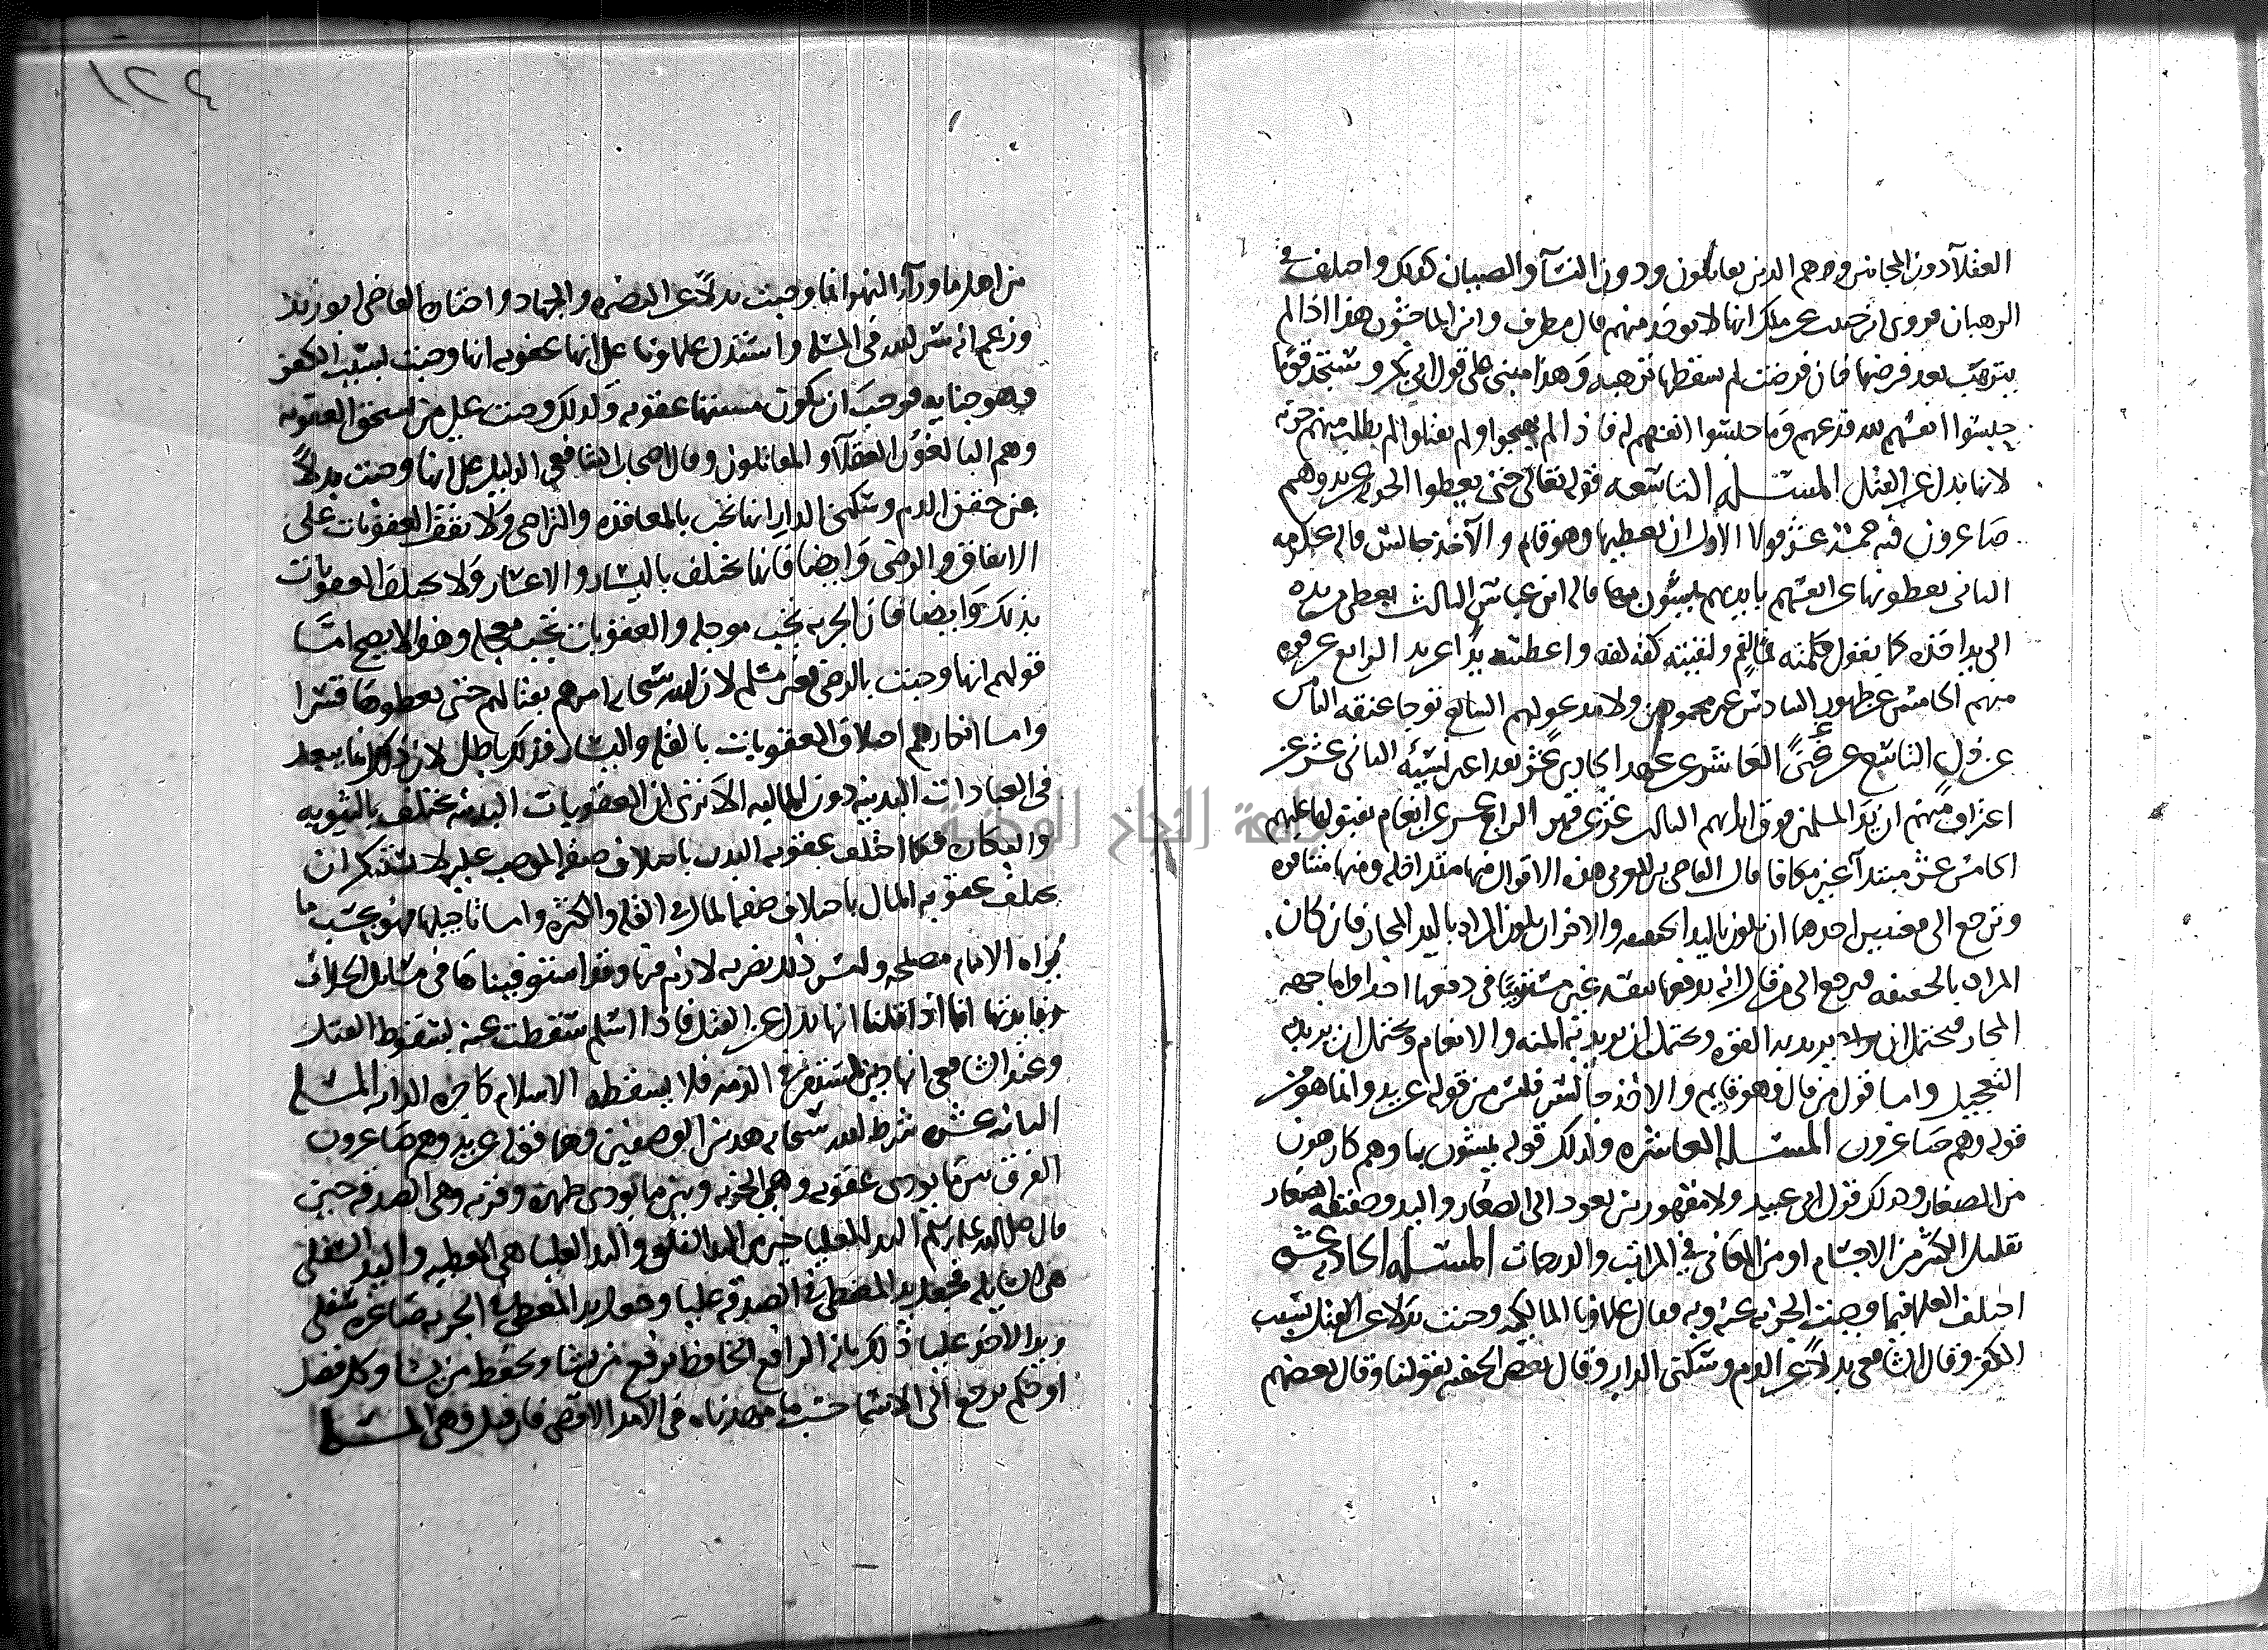 العقلا دون المجانين وهم الذين يقاتلون ودون النسآ والصبيان كذلك واختلف في
الرهبان فروى ابن حبيب عن ملك انها لا توخذ منهم قال مطرف وابن الماجشون هذا اذا لم
يترهب بعد فرضها فان فرضت لم يسقطها ترهبه وهذا مبني على قول ابي بكر وستجد قوما
حبسوا انفسهم لله فذرهم وما حبسوا انفسهم له فاذا لم يهيجوا ولم يقتلوا لم يطلب منهم جزية
لانها بدل عن القتل المسئلة التاسعة قوله تعالى حتى يعطوا الجزية عن يد وهم
صاغرون فيه خمسة عشر قولا الاول ان يعطيها وهو قايم والآخذ جالس قاله عكرمه
الثاني يعطونها عن انفسهم بايديهم يمشون بها قاله ابن عباس الثالث يعطى من يده
الى يد اخذه كما يقول كلمته فما لفم ولقيته كفه لكفه واعطيته يدا عن يد الرابع عن قوة
منهم الخامس عن ظهور السادس غير محمودين ولا مدعو لهم السابع توجا عنقه الثامن
عن ذل التاسع عن غنى العاشر عن عهد الحادي عشر نقدا غير نسيئة الثاني عشر عن
اعتراف منهم ان يد المسلمين فوق ايديهم الثالث عشر عن قهر الرابع عشر عن انعام بقبولها عليهم
الخامس عشر مبتدآ غير مكافا قال القاضي بن العربي هذه الاقوال منها متداخلة ومنها متنافره
وترجع الى معنيين احدهما ان يكون باليد الحقيقه والاخر ان يكون المراد باليد المجاز فان كان
المراد بالحقيقه فيرجع الى من قال انه يدفعها بنفسه غير مستنيب في دفعها احدا واما جهة
المجاز فيحتمل ان يريد به القوه ويحتمل ان يريد به المنه والانعام ويحتمل ان يريد به
التعجيل واما قول من قال وهو قايم والاخذ جالس فليس من قوله عن يد وانما هو من
قوله وهم صاغرون المسئلة العاشره وكذلك قوله يمشون بها وهم كارهون
من الصغار وكذلك قول ابي عبيد ولا مقهورين يعود الى الصغار واليد وحقيقة الصغار
تقليل الكثير من الاجسام او من المعاني في المراتب والدرجات المسئلة الحاديه عشر
اختلف العلما فيما وجبت الجزيه عنه وبه فقال علماونا المالكيه وجبت بدلا عن القتل بسبب
الكفر وقال الشافعي بدلا عن الدم وسكنى الدار وقال بعض الحنفيه بقولنا وقال بعضهم
١٢٤
من اهل ما ورآ النهر انما وجبت بدلا عن النصره والجهاد واختاره القاضي ابو زيد
وزعم انه سر الله في المسئله واستدل علماونا على انها عقوبه انها وجبت بسبب الكفر
وهو جنايه فوجب ان يكون مسببها عقوبه ولذلك وجبت على من يستحق العقوبه
وهم البالغون العقلآ المقاتلون وقال اصحاب الشافعي الدليل على انها وجبت بدلا
عن حقن الدم وسكنى الدار انها تجب بالمعاقده والتراضي ولا تقف العقوبات على
الاتفاق والرضى وايضا فانها تختلف باليسار والاعسار ولا تختلف العقوبات
بذلك وايضا فان الجزيه تجب موجله والعقوبات تجب معجله وهذا لا يصح امـا
قولهم انها وجبت بالرضى فغير مسلم لان الله سبحانه امرهم بقتالهم حتى يعطوها قسرا
واما انكارهم اختلاف العقوبات بالقله واليسار فذلك باطل لان ذلك انما يبعد
في العبادات البدنيه دون الماليه الا ترى ان العقوبات البدنيه تختلف بالثيوبه
والبكاره فكما اختلف عقوبه البدن باختلاف صفة الموجب عليه لا يستنكر ان
يختلف عقوبه المال باختلاف صفة المال في القله والكثره واما تاجيلها فهو بحسب ما
يراه الامام مصلحه وليس ذلك بضربه لازم فيها وقد استوفيناها في مسائل الخلاف
وفايدتها انا اذا قلنا انها بدل عن القتل فاذا اسلم سقطت عنه بسقوط القتل
وعند الشافعي انها دين استقر في الذمه فلا يسقطه الاسلام كاجره الدار المسئله
الثانيه عشره شرط الله سبحانه هذين الوصفين وهما قوله عن يد وهم صاغرون
الفرق بين ما يودى عقوبه وهي الجزيه وبين ما يودى طهره وقربه وهي الصدقه حين
قال صلى الله عليه وسلم اليد العليا خير من اليد السفلى واليد العليا هي المعطيه واليد السفلى
هي السايله فجعل يد المعطي في الصدقه عليا وجعل يد المعطي في الجزيه صاغره سفلى
ويد الاخذ عليا ذلك بانه الرافع الخافظ يرفع من يشا ويخفظ من يشا وكل فضل
او حكم يرجع الى الاسما حسب ما مهدناه في الامد الاقصى فان قيل وهي المسئله